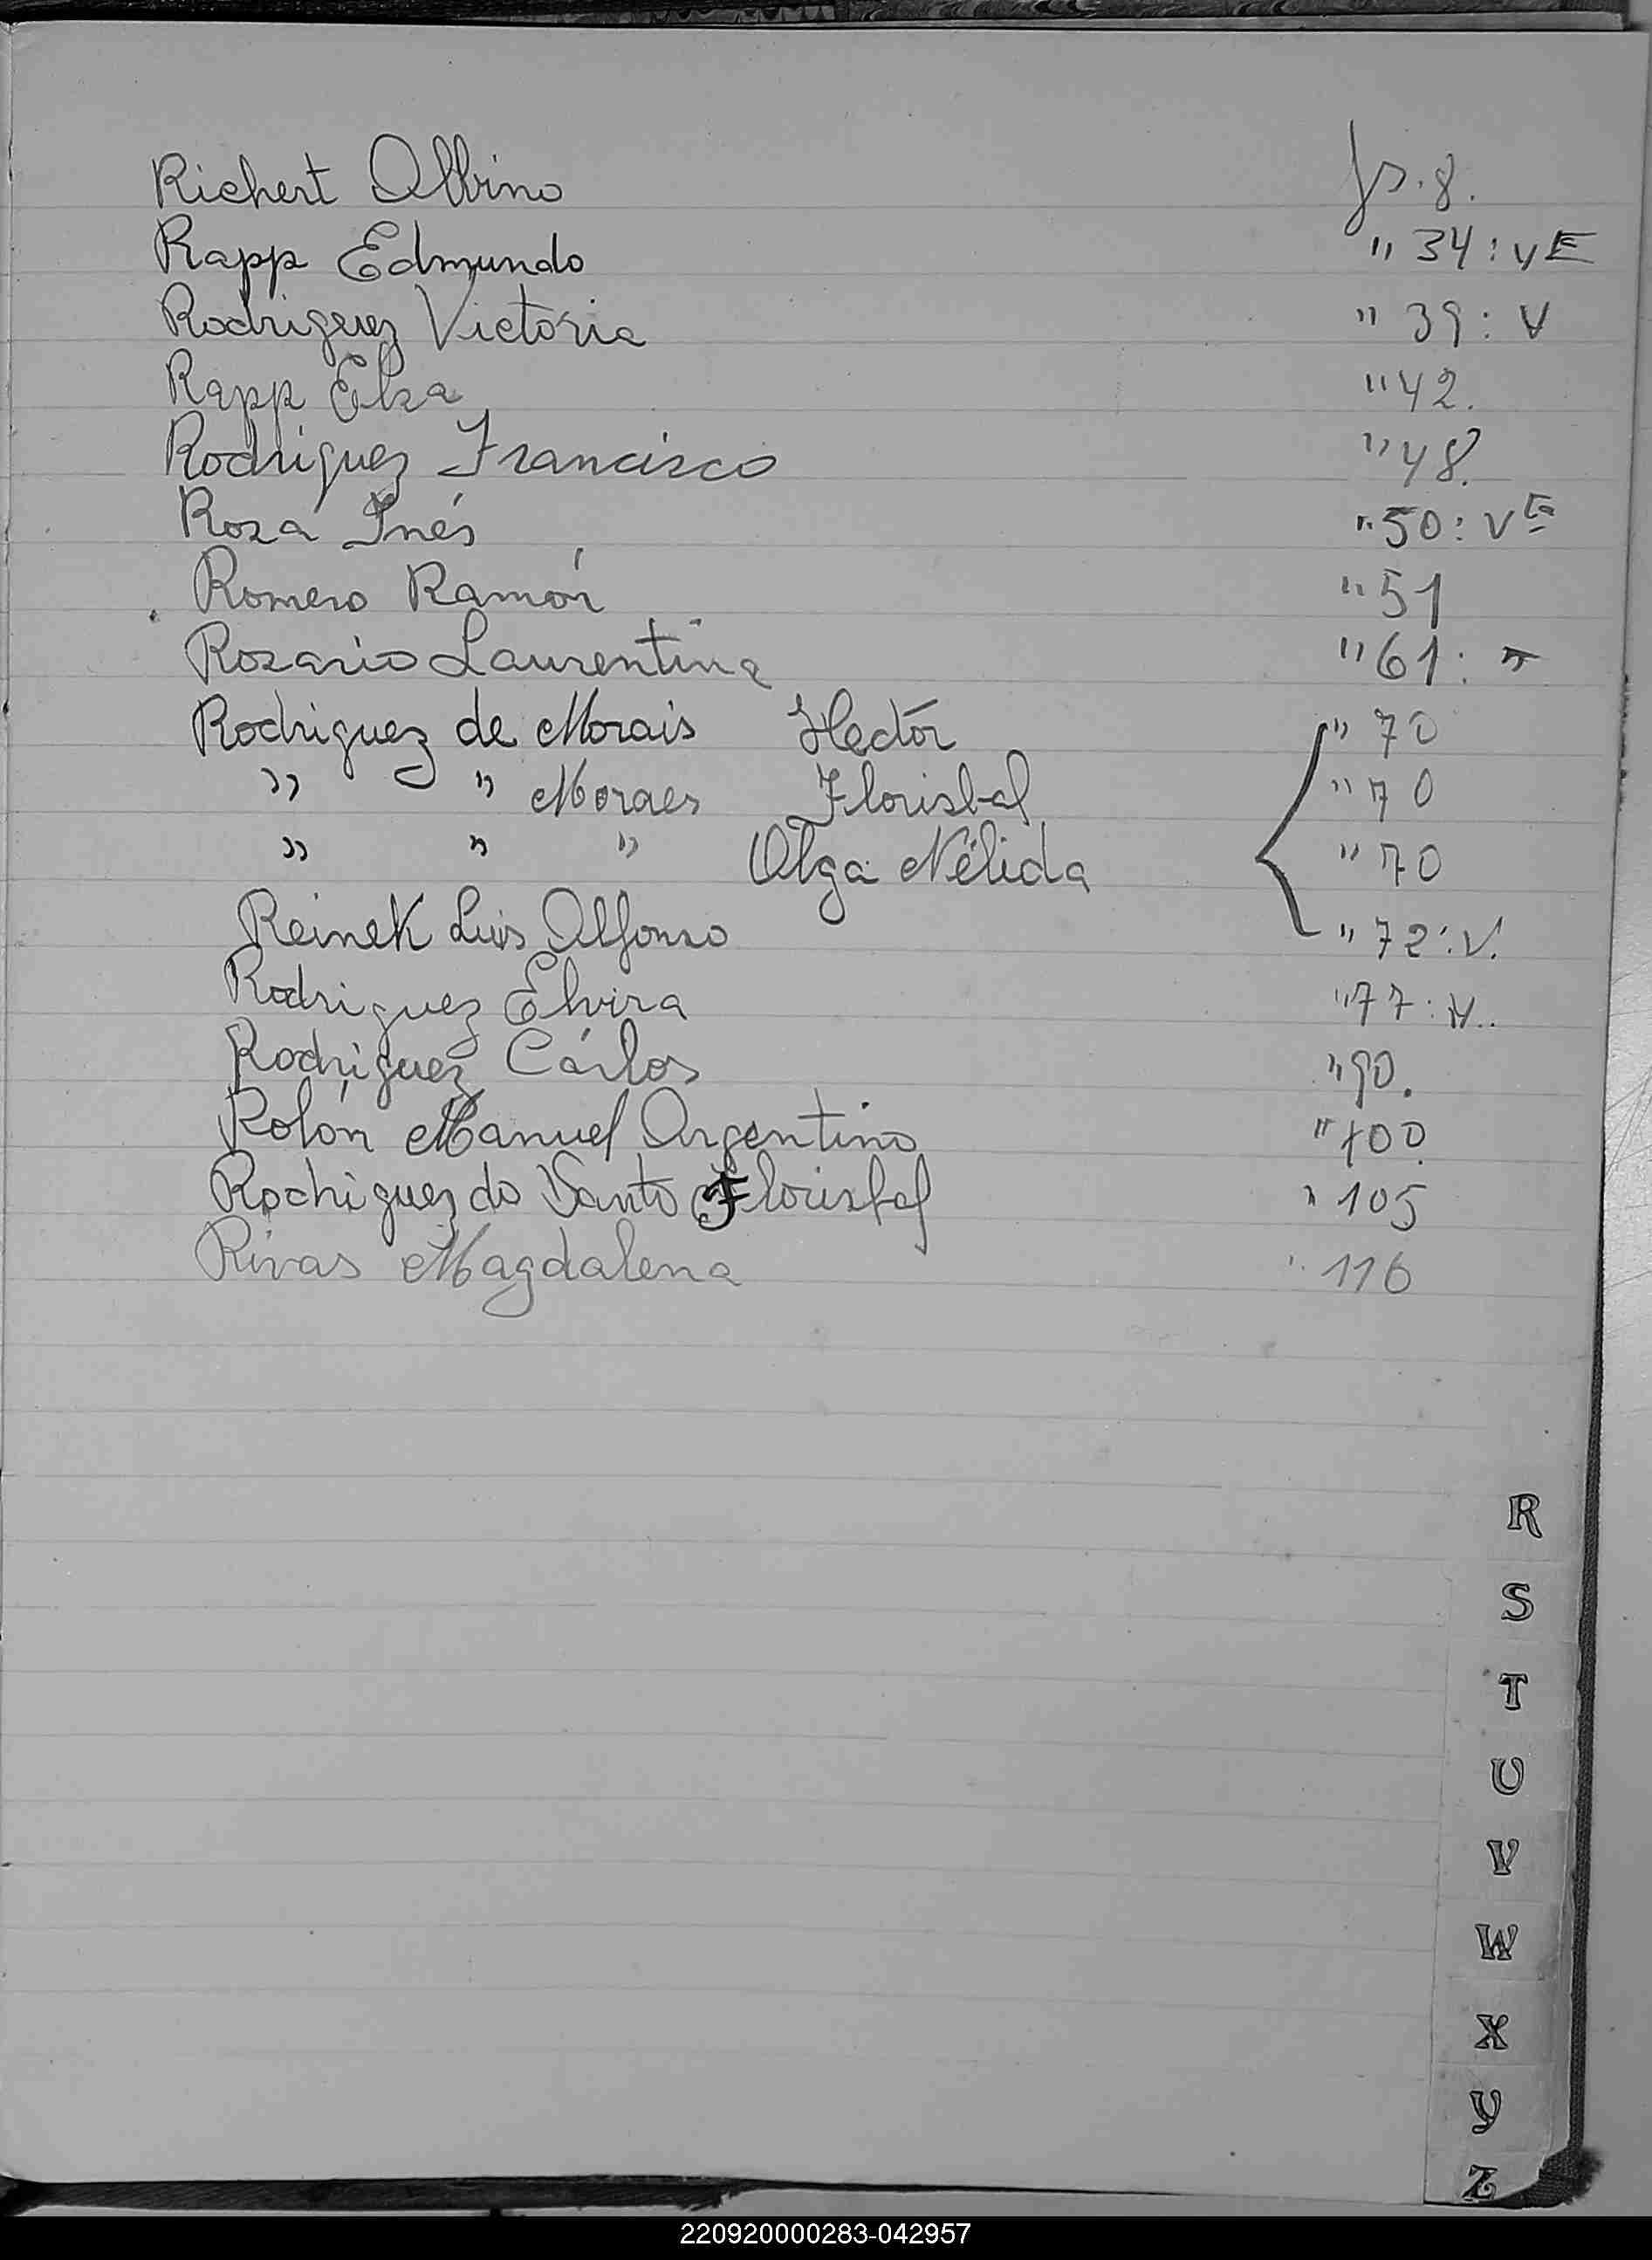 Richert Albino fs. 8.
Rapp Edmundo " 34: vE
Rodriguez Victoria " 39: V
Rapp Elsa " 42.
Rodríguez Francisco " 48.
Roza Inés " 50: vE
Romero Ramón " 51
Rozario Laurentina " 61: "
Rodriguez de Morais Hector " 70
" " Moraes Florisbal " 70
" " " Olga Nélida " 70
Reinek Luis Alfonso " 72: V.
Rodriguez Elvira " 77: V..
Rodríguez Cárlos " 90.
Rolón Manuel Argentino " 100.
Rodriguez do Santo Florisbal " 105
Rivas Magdalena " 116
R
S
T
U
V
W
X
Y
Z
220920000283-042957